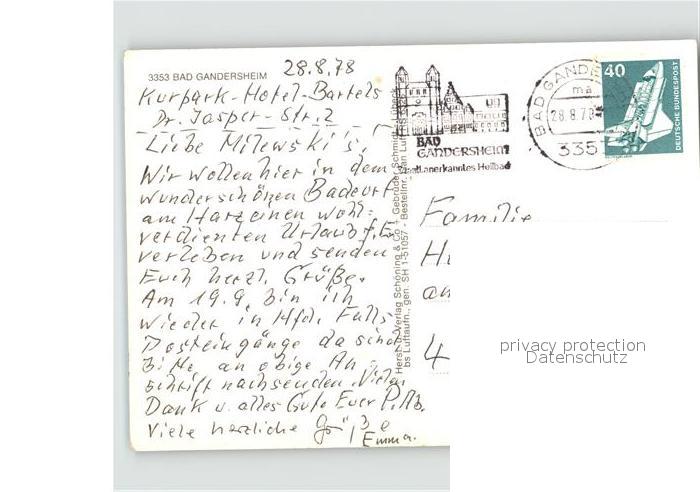 3353 BAD GANDERSHEIM
28.8.78
Kurpark-Hotel-Bartels
Dr. Jasper-Str. 2
Liebe Milewski's,
Wir wollen hier in dem
wunderschönen Badeort
am Harz einen wohl=
verdienten Urlaub
verleben und senden
Euch herzl. Grüße.
Am 19.9. bin ich
wieder in Hfd. Falls
Posteingänge da sind
Bitte an obige An-
schrift nachsenden. Vielen
Dank u. alles Gute Euer
Viele herzliche Grüße
Emma.
BAD
GANDERSHEIM
staatl. anerkanntes Heilbad
BAD GANDE
ma
28.8.78
335
40
DEUTSCHE BUNDESPOST
Herst. u. Verlag Schöning & Co. + Gebrüder Schmidt, Lübeck
bs Luftaufn., gen. SH 1-51057 - Bestellnr.
Familie
H
an
4
privacy protection
Datenschutz